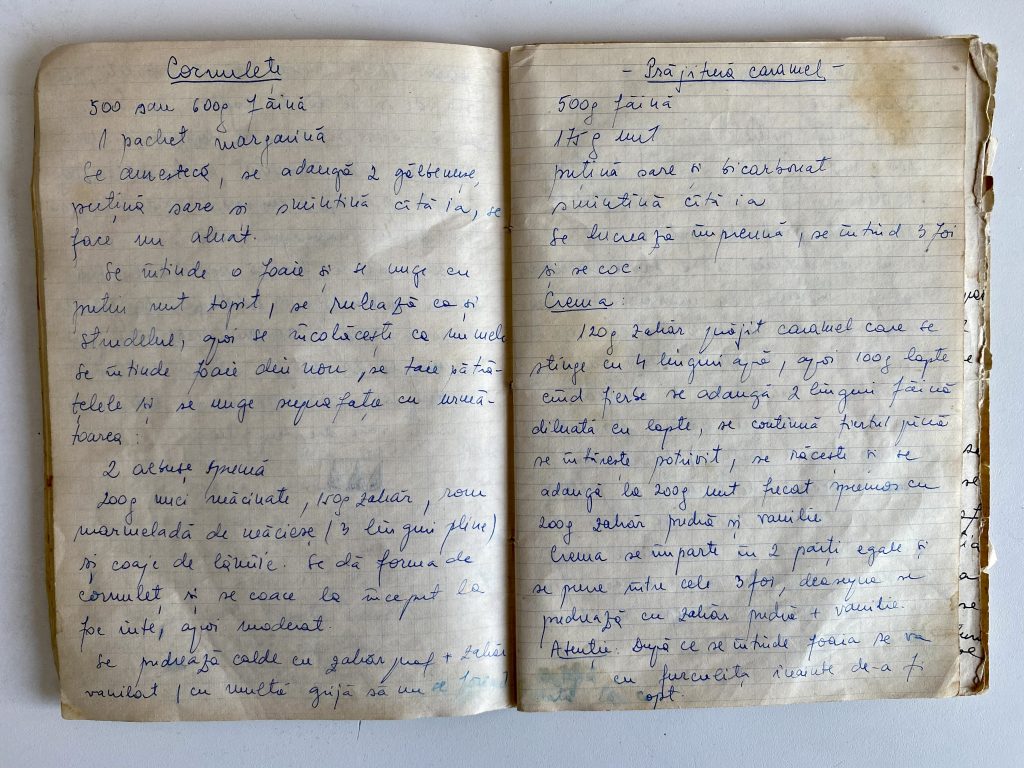 Cornulețe
500 sau 600g făină
1 pachet margarină
Se amestecă, se adaugă 2 gălbenușe,
puțină sare și smîntînă cîtă ia, se
face un aluat.
Se întinde o foaie și se unge cu
puțin unt topit, se rulează ca și
strudelul, apoi se încolăcește ca un melc
Se întinde foaie din nou, se taie pătră-
țelele și se unge suprafața cu urmă-
toarea:
2 albușe spumă
200g nuci măcinate, 150g zahăr, rom
marmeladă de măcieșe (3 linguri pline)
și coajă de lămîie. Se dă forma de
cornuleț și se coace la început la
foc iute, apoi moderat.
Se pudrează calde cu zahăr praf + zahăr
vanilat, cu multă grijă să nu
- Prăjitură caramel -
500g făină
175g unt
puțină sare și bicarbonat
smîntînă cîtă ia
Se lucrează împreună, se întind 3 foi
și se coc.
Crema:
120g zahăr prăjit caramel care se
stinge cu 4 linguri apă, apoi 100g lapte
cînd fierbe se adaugă 2 linguri făină
diluată cu lapte, se continuă fiertul pînă
se întărește potrivit, se răcește și se
adaugă la 200g unt frecat spumos cu
200g zahăr pudră și vanilie
Crema se împarte în 2 părți egale și
se pune între cele 3 foi, deasupra se
pudrează cu zahăr pudră + vanilie.
Atenție: După ce se întinde foaia se va
cu furculița înainte de-a fi
copt.